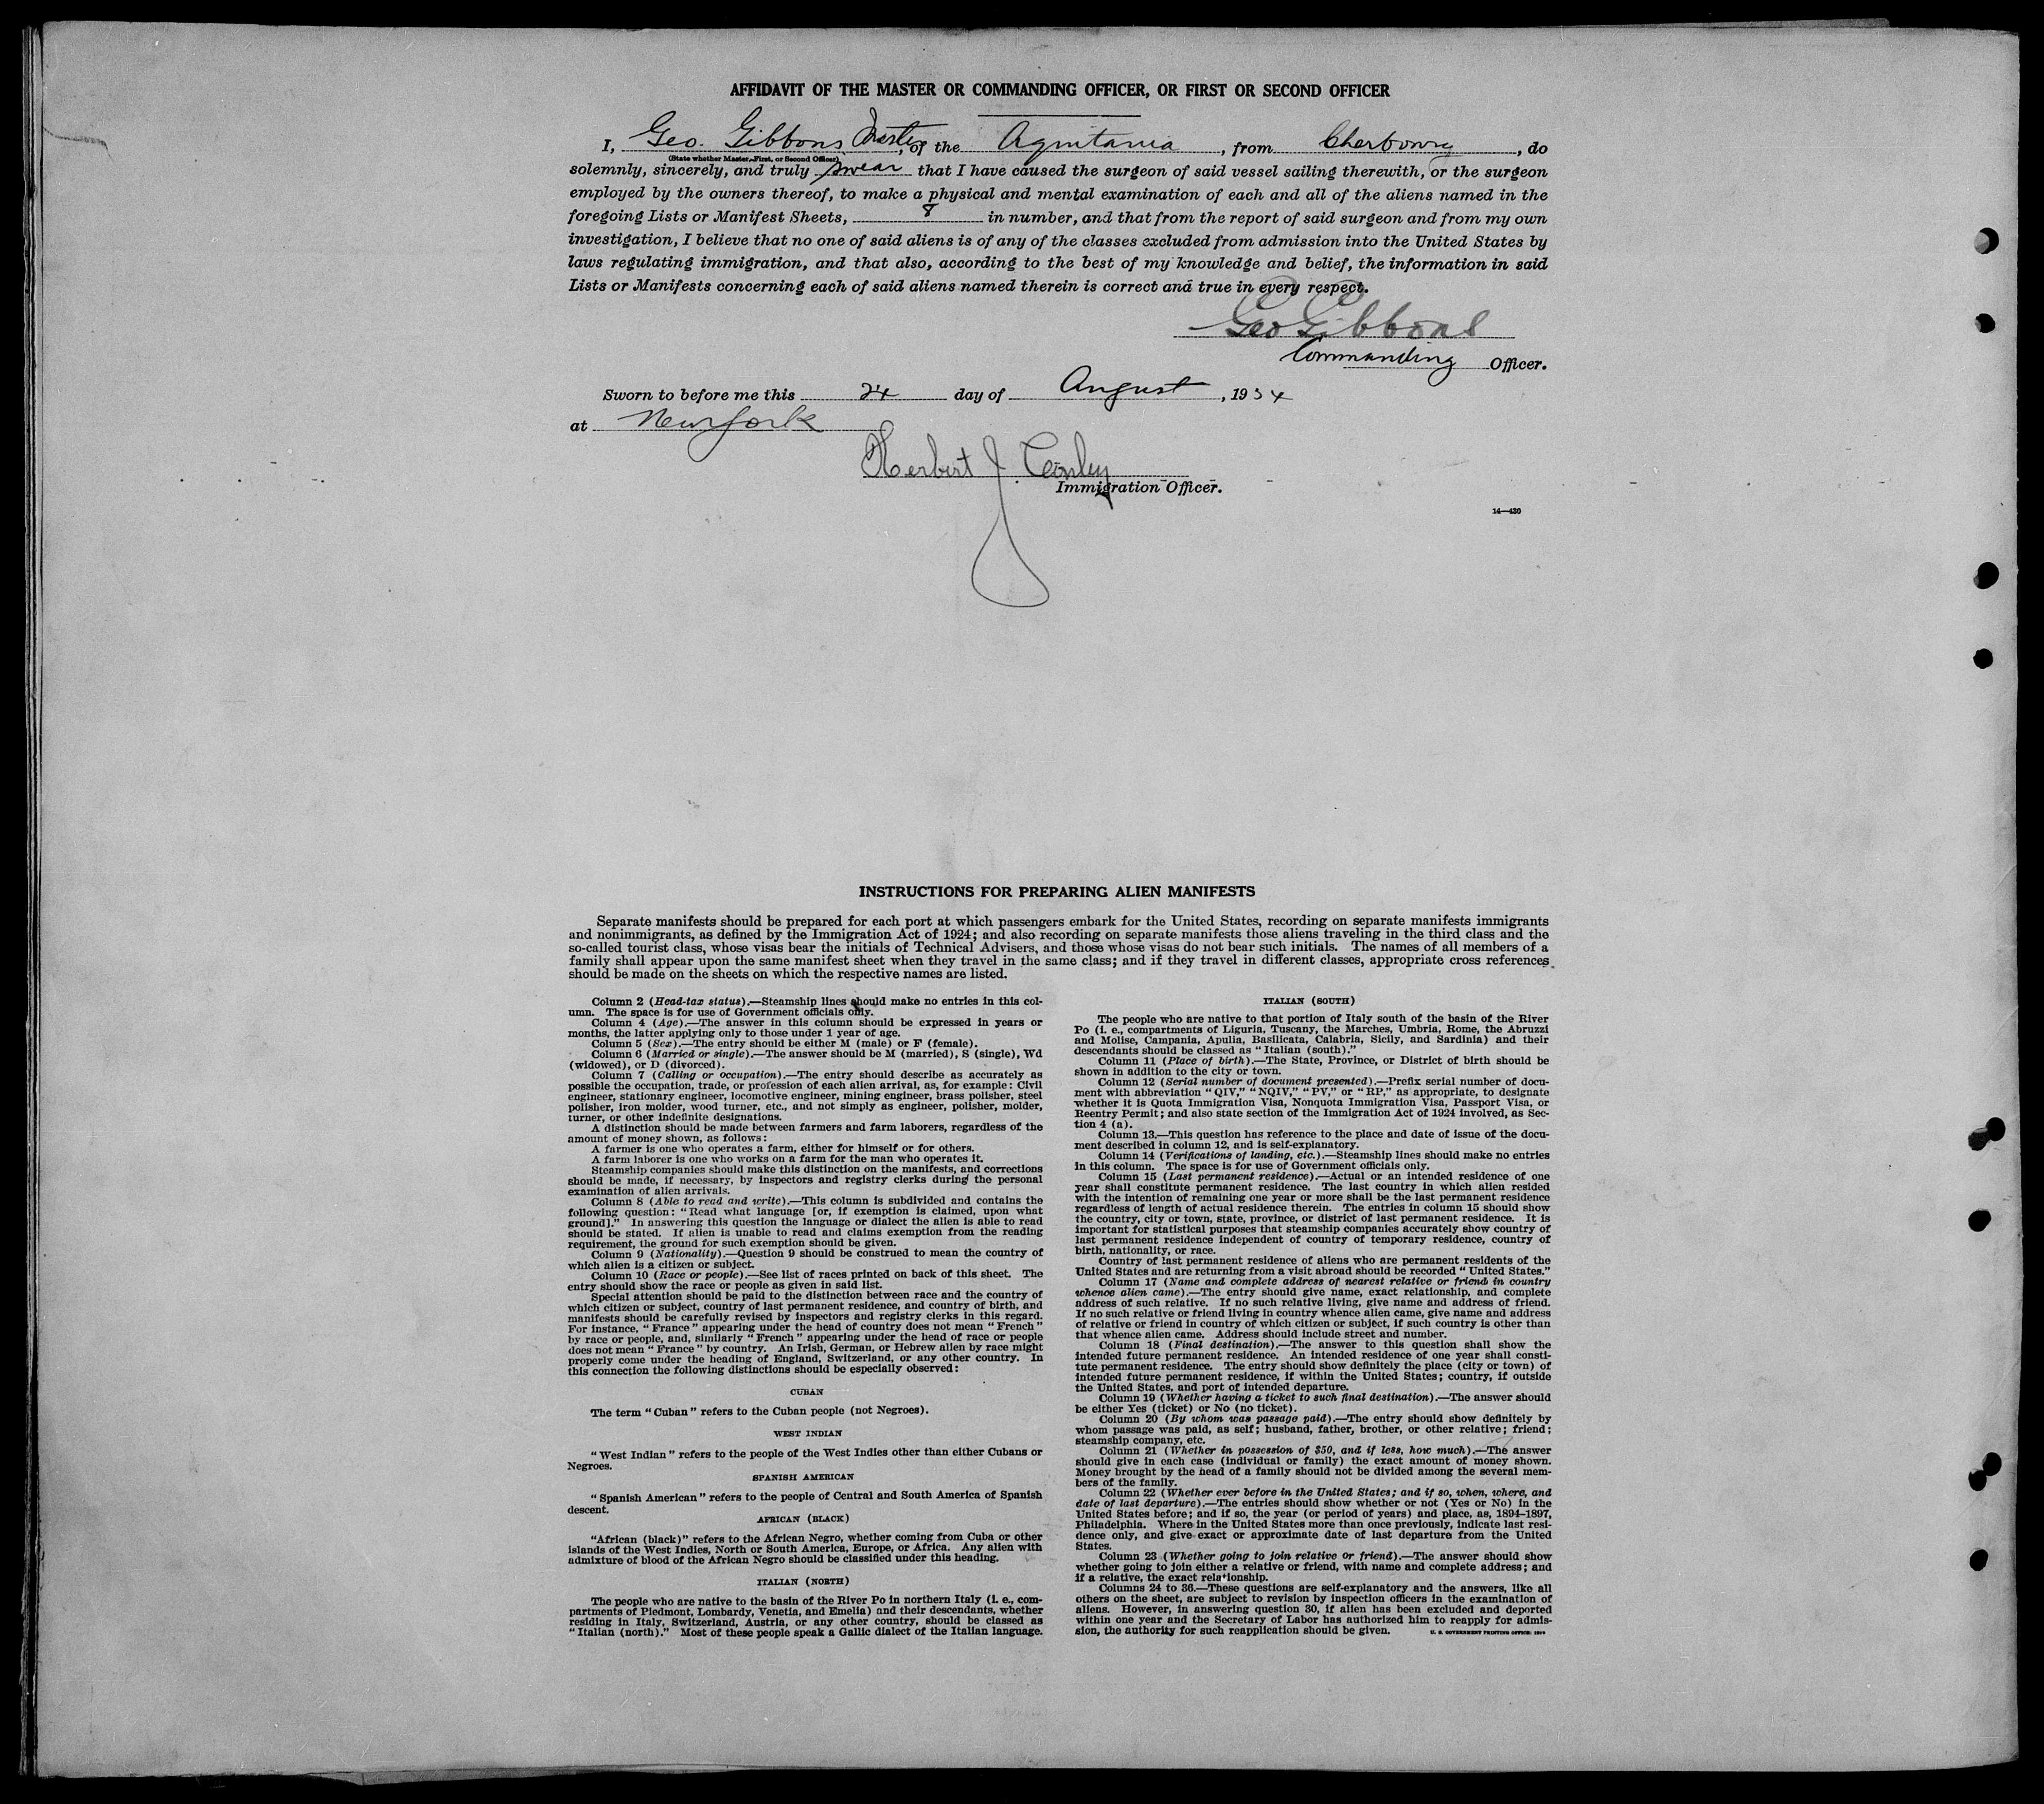 AFFIDAVIT OF THE MASTER OR COMMANDING OFFICER, OR FIRST OR SECOND OFFICER
I, Geo. Gibbons Master, of the Aquitania, from Cherbourg, do
(State whether Master, First, or Second Officer)
solemnly, sincerely, and truly swear that I have caused the surgeon of said vessel sailing therewith, or the surgeon
employed by the owners thereof, to make a physical and mental examination of each and all of the aliens named in the
foregoing Lists or Manifest Sheets, 8 in number, and that from the report of said surgeon and from my own
investigation, I believe that no one of said aliens is of any of the classes excluded from admission into the United States by
laws regulating immigration, and that also, according to the best of my knowledge and belief, the information in said
Lists or Manifests concerning each of said aliens named therein is correct and true in every respect.
Geo Gibbons
Commanding Officer.
Sworn to before me this 24 day of August, 1934
at New York
Herbert J.
Immigration Officer.
14—430
INSTRUCTIONS FOR PREPARING ALIEN MANIFESTS
Separate manifests should be prepared for each port at which passengers embark for the United States, recording on separate manifests immigrants
and nonimmigrants, as defined by the Immigration Act of 1924; and also recording on separate manifests those aliens traveling in the third class and the
so-called tourist class, whose visas bear the initials of Technical Advisers, and those whose visas do not bear such initials. The names of all members of a
family shall appear upon the same manifest sheet when they travel in the same class; and if they travel in different classes, appropriate cross references
should be made on the sheets on which the respective names are listed.
Column 2 (Head-tax status).—Steamship lines should make no entries in this col-
umn. The space is for use of Government officials only.
Column 4 (Age).—The answer in this column should be expressed in years or
months, the latter applying only to those under 1 year of age.
Column 5 (Sex).—The entry should be either M (male) or F (female).
Column 6 (Married or single).—The answer should be M (married), S (single), Wd
(widowed), or D (divorced).
Column 7 (Calling or occupation).—The entry should describe as accurately as
possible the occupation, trade, or profession of each alien arrival, as, for example: Civil
engineer, stationary engineer, locomotive engineer, mining engineer, brass polisher, steel
polisher, iron molder, wood turner, etc., and not simply as engineer, polisher, molder,
turner, or other indefinite designations.
A distinction should be made between farmers and farm laborers, regardless of the
amount of money shown, as follows:
A farmer is one who operates a farm, either for himself or for others.
A farm laborer is one who works on a farm for the man who operates it.
Steamship companies should make this distinction on the manifests, and corrections
should be made, if necessary, by inspectors and registry clerks during the personal
examination of alien arrivals.
Column 8 (Able to read and write).—This column is subdivided and contains the
following question: "Read what language [or, if exemption is claimed, upon what
ground]." In answering this question the language or dialect the alien is able to read
should be stated. If alien is unable to read and claims exemption from the reading
requirement, the ground for such exemption should be given.
Column 9 (Nationality).—Question 9 should be construed to mean the country of
which alien is a citizen or subject.
Column 10 (Race or people).—See list of races printed on back of this sheet. The
entry should show the race or people as given in said list.
Special attention should be paid to the distinction between race and the country of
which citizen or subject, country of last permanent residence, and country of birth, and
manifests should be carefully revised by inspectors and registry clerks in this regard.
For instance, "France" appearing under the head of country does not mean "French"
by race or people, and, similarly "French" appearing under the head of race or people
does not mean "France" by country. An Irish, German, or Hebrew alien by race might
properly come under the heading of England, Switzerland, or any other country. In
this connection the following distinctions should be especially observed:
CUBAN
The term "Cuban" refers to the Cuban people (not Negroes).
WEST INDIAN
"West Indian" refers to the people of the West Indies other than either Cubans or
Negroes.
SPANISH AMERICAN
"Spanish American" refers to the people of Central and South America of Spanish
descent.
AFRICAN (BLACK)
"African (black)" refers to the African Negro, whether coming from Cuba or other
islands of the West Indies, North or South America, Europe, or Africa. Any alien with
admixture of blood of the African Negro should be classified under this heading.
ITALIAN (NORTH)
The people who are native to the basin of the River Po in northern Italy (i. e., com-
partments of Piedmont, Lombardy, Venetia, and Emelia) and their descendants, whether
residing in Italy, Switzerland, Austria, or any other country, should be classed as
"Italian (north)." Most of these people speak a Gallic dialect of the Italian language.
ITALIAN (SOUTH)
The people who are native to that portion of Italy south of the basin of the River
Po (i. e., compartments of Liguria, Tuscany, the Marches, Umbria, Rome, the Abruzzi
and Molise, Campania, Apulia, Basilicata, Calabria, Sicily, and Sardinia) and their
descendants should be classed as "Italian (south)."
Column 11 (Place of birth).—The State, Province, or District of birth should be
shown in addition to the city or town.
Column 12 (Serial number of document presented).—Prefix serial number of docu-
ment with abbreviation "QIV," "NQIV," "PV," or "RP," as appropriate, to designate
whether it is Quota Immigration Visa, Nonquota Immigration Visa, Passport Visa, or
Reentry Permit; and also state section of the Immigration Act of 1924 involved, as Sec-
tion 4 (a).
Column 13.—This question has reference to the place and date of issue of the docu-
ment described in column 12, and is self-explanatory.
Column 14 (Verifications of landing, etc.).—Steamship lines should make no entries
in this column. The space is for use of Government officials only.
Column 15 (Last permanent residence).—Actual or an intended residence of one
year shall constitute permanent residence. The last country in which alien resided
with the intention of remaining one year or more shall be the last permanent residence
regardless of length of actual residence therein. The entries in column 15 should show
the country, city or town, state, province, or district of last permanent residence. It is
important for statistical purposes that steamship companies accurately show country of
last permanent residence independent of country of temporary residence, country of
birth, nationality, or race.
Country of last permanent residence of aliens who are permanent residents of the
United States and are returning from a visit abroad should be recorded "United States."
Column 17 (Name and complete address of nearest relative or friend in country
whence alien came).—The entry should give name, exact relationship, and complete
address of such relative. If no such relative living, give name and address of friend.
If no such relative or friend living in country whence alien came, give name and address
of relative or friend in country of which citizen or subject, if such country is other than
that whence alien came. Address should include street and number.
Column 18 (Final destination).—The answer to this question shall show the
intended future permanent residence. An intended residence of one year shall consti-
tute permanent residence. The entry should show definitely the place (city or town) of
intended future permanent residence, if within the United States; country, if outside
the United States, and port of intended departure.
Column 19 (Whether having a ticket to such final destination).—The answer should
be either Yes (ticket) or No (no ticket).
Column 20 (By whom was passage paid).—The entry should show definitely by
whom passage was paid, as self; husband, father, brother, or other relative; friend;
steamship company, etc.
Column 21 (Whether in possession of $50, and if less, how much).—The answer
should give in each case (individual or family) the exact amount of money shown.
Money brought by the head of a family should not be divided among the several mem-
bers of the family.
Column 22 (Whether ever before in the United States; and if so, when, where, and
date of last departure).—The entries should show whether or not (Yes or No) in the
United States before; and if so, the year (or period of years) and place, as, 1894–1897,
Philadelphia. Where in the United States more than once previously, indicate last resi-
dence only, and give exact or approximate date of last departure from the United
States.
Column 23 (Whether going to join relative or friend).—The answer should show
whether going to join either a relative or friend, with name and complete address; and
if a relative, the exact relationship.
Columns 24 to 36.—These questions are self-explanatory and the answers, like all
others on the sheet, are subject to revision by inspection officers in the examination of
aliens. However, in answering question 30, if alien has been excluded and deported
within one year and the Secretary of Labor has authorized him to reapply for admis-
sion, the authority for such reapplication should be given.
U. S. GOVERNMENT PRINTING OFFICE: